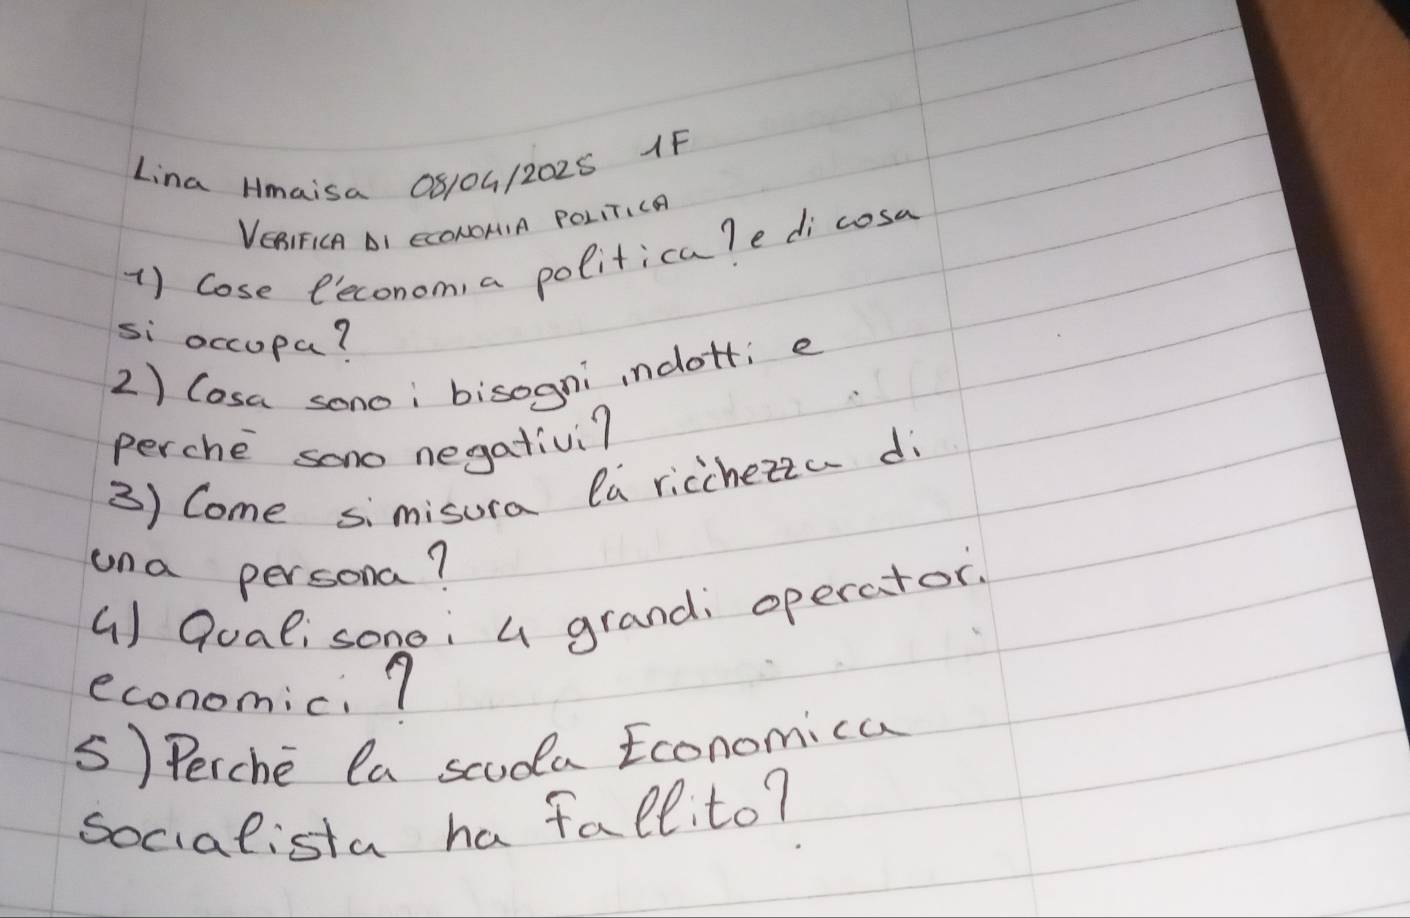 Lina Hmaisa 08/04/2025 1F
VERIFICA DI ECONOMIA POLITICA
1) Cose l'economia politica? e di cosa
si occupa?
2) Cosa sono i bisogni indotti e
perchè sono negativi?
3) Come si misura la ricchezza di
una persona?
4) Quali sono i 4 grandi operatori
economici?
5) Perchè la scuola Economica
socialista ha fallito?